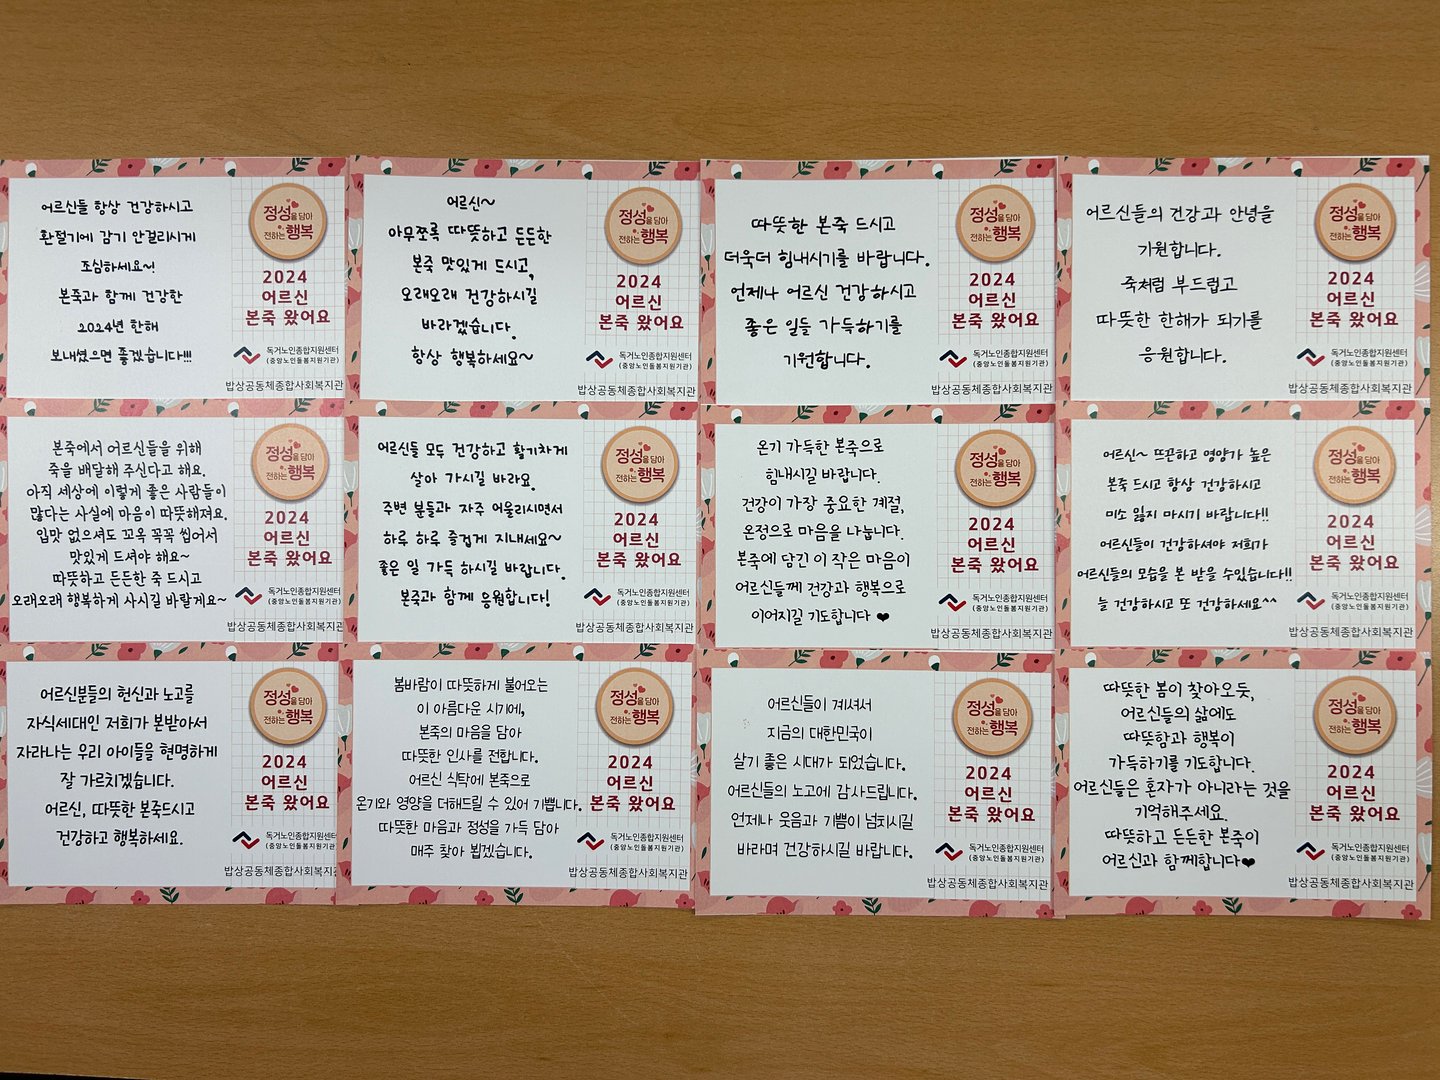 어르신들 항상 건강하시고
환절기에 감기 안걸리시게
조심하세요~!
본죽과 함께 건강한
2024년 한해
보내셨으면 좋겠습니다!!!
정성을 담아
전하는 행복
2024
어르신
본죽 왔어요
독거노인종합지원센터
(중앙노인돌봄지원기관)
밥상공동체종합사회복지관
어르신~
아무쪼록 따뜻하고 든든한
본죽 맛있게 드시고,
오래오래 건강하시길
바라겠습니다.
항상 행복하세요~
정성을 담아
전하는 행복
2024
어르신
본죽 왔어요
독거노인종합지원센터
(중앙노인돌봄지원기관)
밥상공동체종합사회복지관
따뜻한 본죽 드시고
더욱더 힘내시기를 바랍니다.
언제나 어르신 건강하시고
좋은 일들 가득하기를
기원합니다.
정성을 담아
전하는 행복
2024
어르신
본죽 왔어요
독거노인종합지원센터
(중앙노인돌봄지원기관)
밥상공동체종합사회복지관
어르신들의 건강과 안녕을
기원합니다.
죽처럼 부드럽고
따뜻한 한해가 되기를
응원합니다.
정성을 담아
전하는 행복
2024
어르신
본죽 왔어요
독거노인종합지원센터
(중앙노인돌봄지원기관)
밥상공동체종합사회복지관
본죽에서 어르신들을 위해
죽을 배달해 주신다고 해요.
아직 세상에 이렇게 좋은 사람들이
많다는 사실에 마음이 따뜻해져요.
입맛 없으셔도 꼬옥 꼭꼭 씹어서
맛있게 드셔야 해요~
따뜻하고 든든한 죽 드시고
오래오래 행복하게 사시길 바랄게요~
정성을 담아
전하는 행복
2024
어르신
본죽 왔어요
독거노인종합지원센터
(중앙노인돌봄지원기관)
밥상공동체종합사회복지관
어르신들 모두 건강하고 활기차게
살아 가시길 바라요.
주변 분들과 자주 어울리시면서
하루 하루 즐겁게 지내세요~
좋은 일 가득 하시길 바랍니다.
본죽과 함께 응원합니다!
정성을 담아
전하는 행복
2024
어르신
본죽 왔어요
독거노인종합지원센터
(중앙노인돌봄지원기관)
밥상공동체종합사회복지관
온기 가득한 본죽으로
힘내시길 바랍니다.
건강이 가장 중요한 계절,
온정으로 마음을 나눕니다.
본죽에 담긴 이 작은 마음이
어르신들께 건강과 행복으로
이어지길 기도합니다 ♥
정성을 담아
전하는 행복
2024
어르신
본죽 왔어요
독거노인종합지원센터
(중앙노인돌봄지원기관)
밥상공동체종합사회복지관
어르신~ 뜨끈하고 영양가 높은
본죽 드시고 항상 건강하시고
미소 잃지 마시기 바랍니다!!
어르신들이 건강하셔야 저희가
어르신들의 모습을 본 받을 수있습니다!!
늘 건강하시고 또 건강하세요^^
정성을 담아
전하는 행복
2024
어르신
본죽 왔어요
독거노인종합지원센터
(중앙노인돌봄지원기관)
밥상공동체종합사회복지관
어르신분들의 헌신과 노고를
자식세대인 저희가 본받아서
자라나는 우리 아이들을 현명하게
잘 가르치겠습니다.
어르신, 따뜻한 본죽드시고
건강하고 행복하세요.
정성을 담아
전하는 행복
2024
어르신
본죽 왔어요
독거노인종합지원센터
(중앙노인돌봄지원기관)
밥상공동체종합사회복지관
봄바람이 따뜻하게 불어오는
이 아름다운 시기에,
본죽의 마음을 담아
따뜻한 인사를 전합니다.
어르신 식탁에 본죽으로
온기와 영양을 더해드릴 수 있어 기쁩니다.
따뜻한 마음과 정성을 가득 담아
매주 찾아 뵙겠습니다.
정성을 담아
전하는 행복
2024
어르신
본죽 왔어요
독거노인종합지원센터
(중앙노인돌봄지원기관)
밥상공동체종합사회복지관
어르신들이 계셔서
지금의 대한민국이
살기 좋은 시대가 되었습니다.
어르신들의 노고에 감사드립니다.
언제나 웃음과 기쁨이 넘치시길
바라며 건강하시길 바랍니다.
정성을 담아
전하는 행복
2024
어르신
본죽 왔어요
독거노인종합지원센터
(중앙노인돌봄지원기관)
밥상공동체종합사회복지관
따뜻한 봄이 찾아오듯,
어르신들의 삶에도
따뜻함과 행복이
가득하기를 기도합니다.
어르신들은 혼자가 아니라는 것을
기억해주세요.
따뜻하고 든든한 본죽이
어르신과 함께합니다♥
정성을 담아
전하는 행복
2024
어르신
본죽 왔어요
독거노인종합지원센터
(중앙노인돌봄지원기관)
밥상공동체종합사회복지관